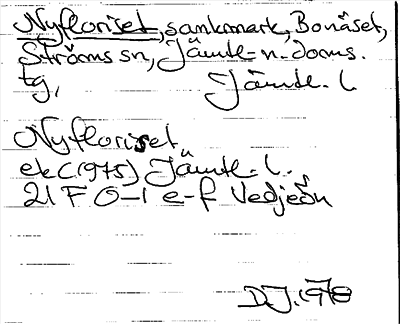 Nyfloriset, sankmark, Bonäset,
Ströms sn, Jämtl. n. doms.
tg, Jämtl. l.
Nyfloriset
ek (1975) Jämtl. l.
21 F 0-1 e-f Vedjeön
D.J. 1978